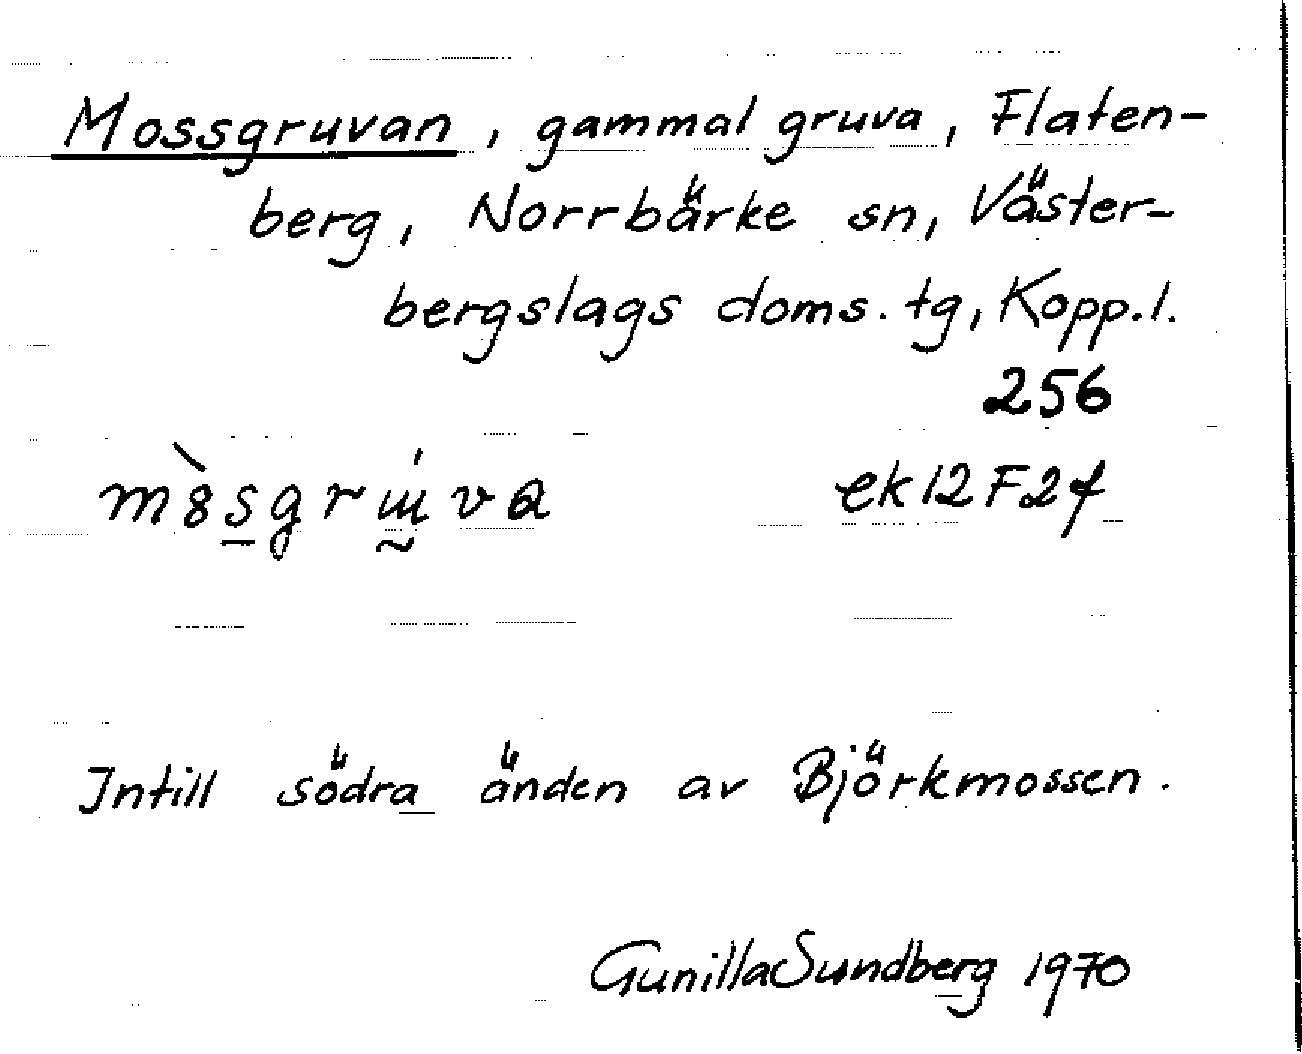 Mossgruvan, gammal gruva, Flaten-
berg, Norrbärke sn, Väster-
bergslags doms. tg, Kopp.l.
256
ek 12 F 2 f
Intill södra änden av Björkmossen.
Gunilla Sundberg 1970